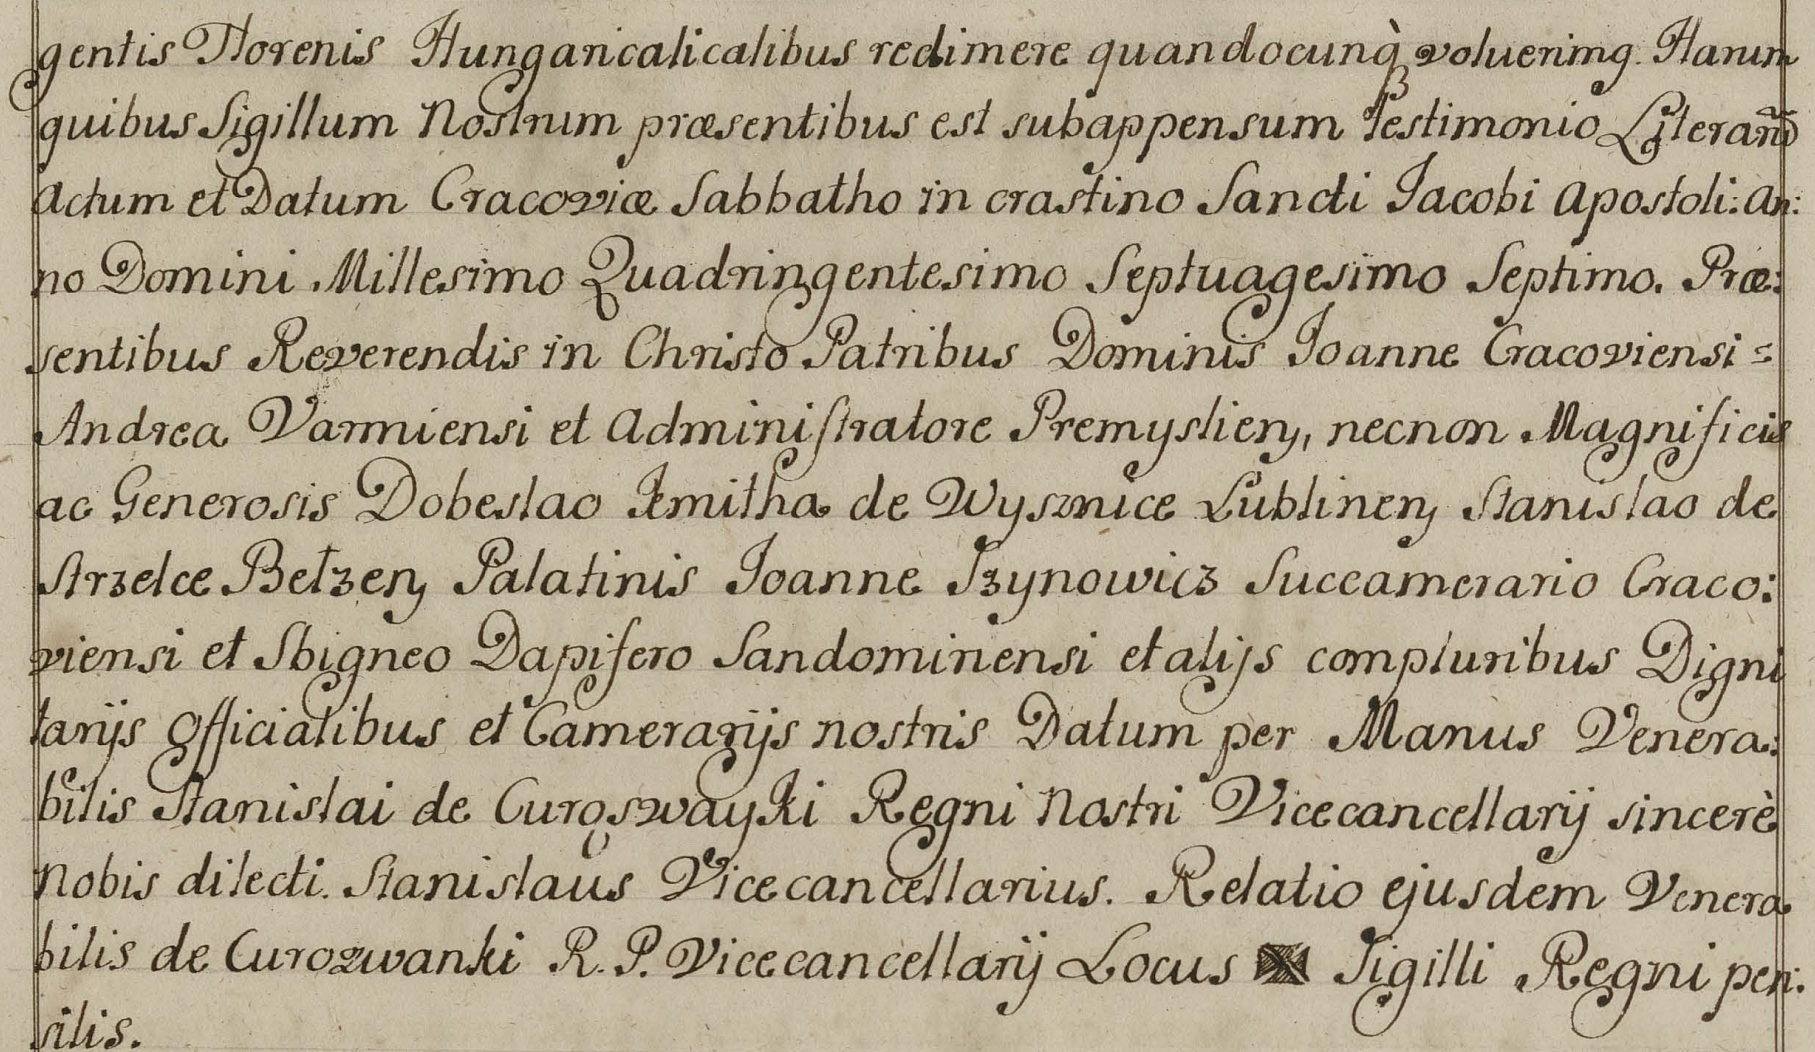 gentis Florenis Hungaricalicalibus redimere quandocunq̀ꝫ voluerimq. Harum
quibus Sigillum Nostrum præsentibus est subappensum testimonio Literarũ
Actum et Datum Cracoviæ Sabbatho in crastino Sancti Jacobi Apostoli: An:
no Domini Millesimo Quadringentesimo Septuagesimo Septimo. Præ:
sentibus Reverendis in Christo Patribus Dominis Joanne Cracoviensi =
Andrea Varmiensi et Administratore Premyslien, necnon Magnificis
ac Generosis Dobeslao Kmitha de Wysznice Lublinen Stanislao de
Strzelce Belzen Palatinis Joanne Szynowicz Succamerario Craco:
viensi et Sbigneo Dapifero Sandomiriensi et alijs compluribus Digni
tarijs Officialibus et Camerarijs nostris Datum per Manus Venera:
bilis Stanislai de Curoswayki Regni Nostri Vicecancellarij sincerè
Nobis dilecti. Stanislaus Vicecancellarius. Relatio ejusdem Venera
bilis de Curozwanki R. P. Vicecancellarij Locus Sigilli Regni pen:
silis.